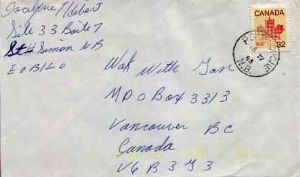 Jocelyne Hebert
Site 33 Boite 7
St Simon NB
E0B1L0
CANADA
32
N.B.
Wok With Yan
M P O Box 3313
Vancouver BC
Canada
V6B 3Y3